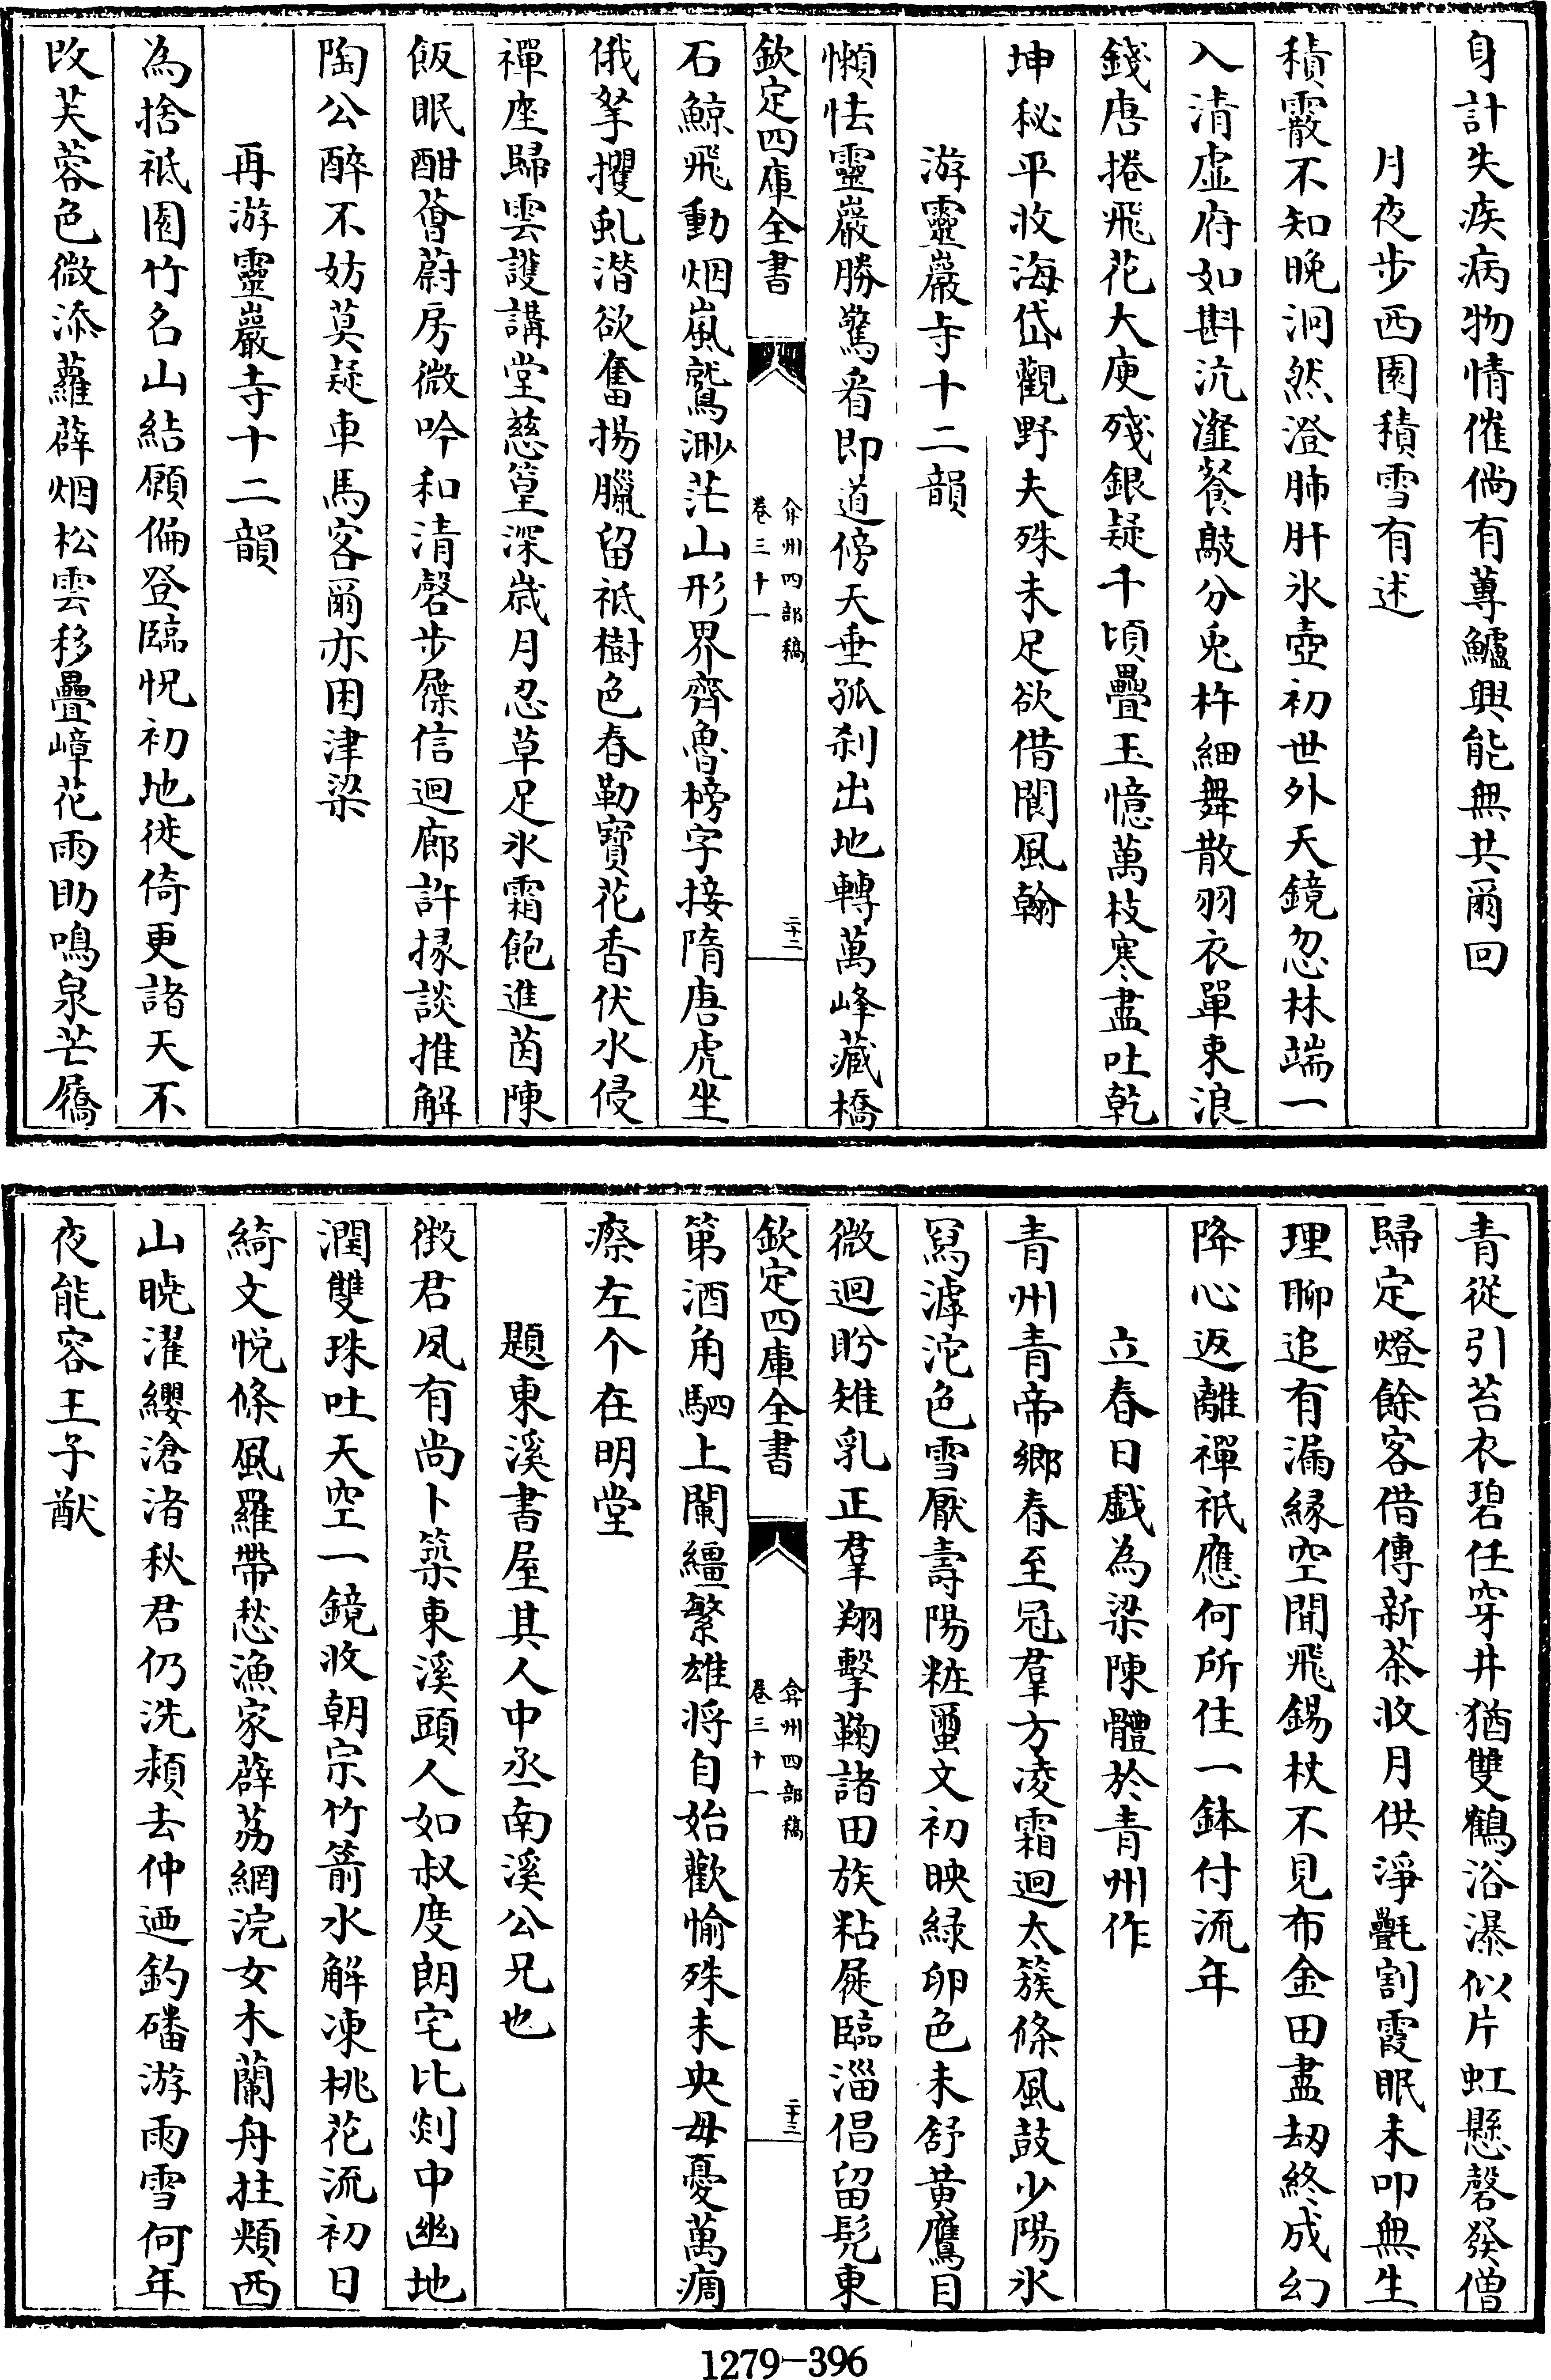 身計失疾病物情催倘有蓴鱸興能無共爾回
月夜步西園積雪有述
積霰不知晚泂然澄肺肝氷壺初世外天鏡忽林端一
入清虛府如斟沆瀣餐敲分兎杵細舞散羽衣單東浪
錢唐捲飛花大庾殘銀疑千頃疊玉憶萬枝寒盡吐乾
坤秘平收海岱觀野夫殊未足欲借閬風翰
游靈巖寺十二韻
懶怯靈巖勝驚看即道傍天垂孤刹出地轉萬峰藏橋
欽定四庫全書
弇州四部稿
卷三十一
二十二
石鯨飛動烟嵐鷲渺茫山形界齊魯榜字接隋唐虎坐
俄拏攫虬潜欲奮揚臘留祗樹色春勒寳花香伏水侵
禪座歸雲護講堂慈篁深嵗月忍草足氷霜飽進茵陳
飯眠酣薈蔚房微吟和清磬步屧信迴廊許掾談推解
陶公醉不妨莫疑車馬客爾亦困津梁
再游靈巖寺十二韻
為捨祗園竹名山結願偏登臨怳初地徙倚更諸天不
改芙蓉色微添蘿薜烟松雲移疊嶂花雨助鳴泉芒屩
青從引苔衣碧任穿井猶雙鶴浴瀑似片虹懸磬發僧
歸定燈餘客借傳新茶收月供淨㲲割霞眠未叩無生
理聊追有漏緣空聞飛錫杖不見布金田盡刼終成幻
降心返離禪祇應何所住一鉢付流年
立春日戯為梁陳體於青州作
青州青帝鄉春至冠羣方凌霜迴太簇條風鼓少陽氷
冩滹沱色雪厭壽陽粧蠒文初映綠卵色未舒黄鷹目
微迴盻雉乳正羣翔擊鞠諸田族粘屣臨淄倡留髠東
欽定四庫全書
弇州四部稿
卷三十一
二十三
第酒角駟上闌繮繁雄将自始歡愉殊未央毋憂萬痌
瘵左个在明堂
題東溪書屋其人中丞南溪公兄也
徴君夙有尚卜築東溪頭人如叔度朗宅比剡中幽地
潤雙珠吐天空一鏡收朝宗竹箭水解凍桃花流初日
綺文悦條風羅帶愁漁家薜荔網浣女木蘭舟拄頰西
山曉濯纓滄渚秋君仍洗熲去仲迺釣磻游雨雪何年
夜能容王子猷
1279-396